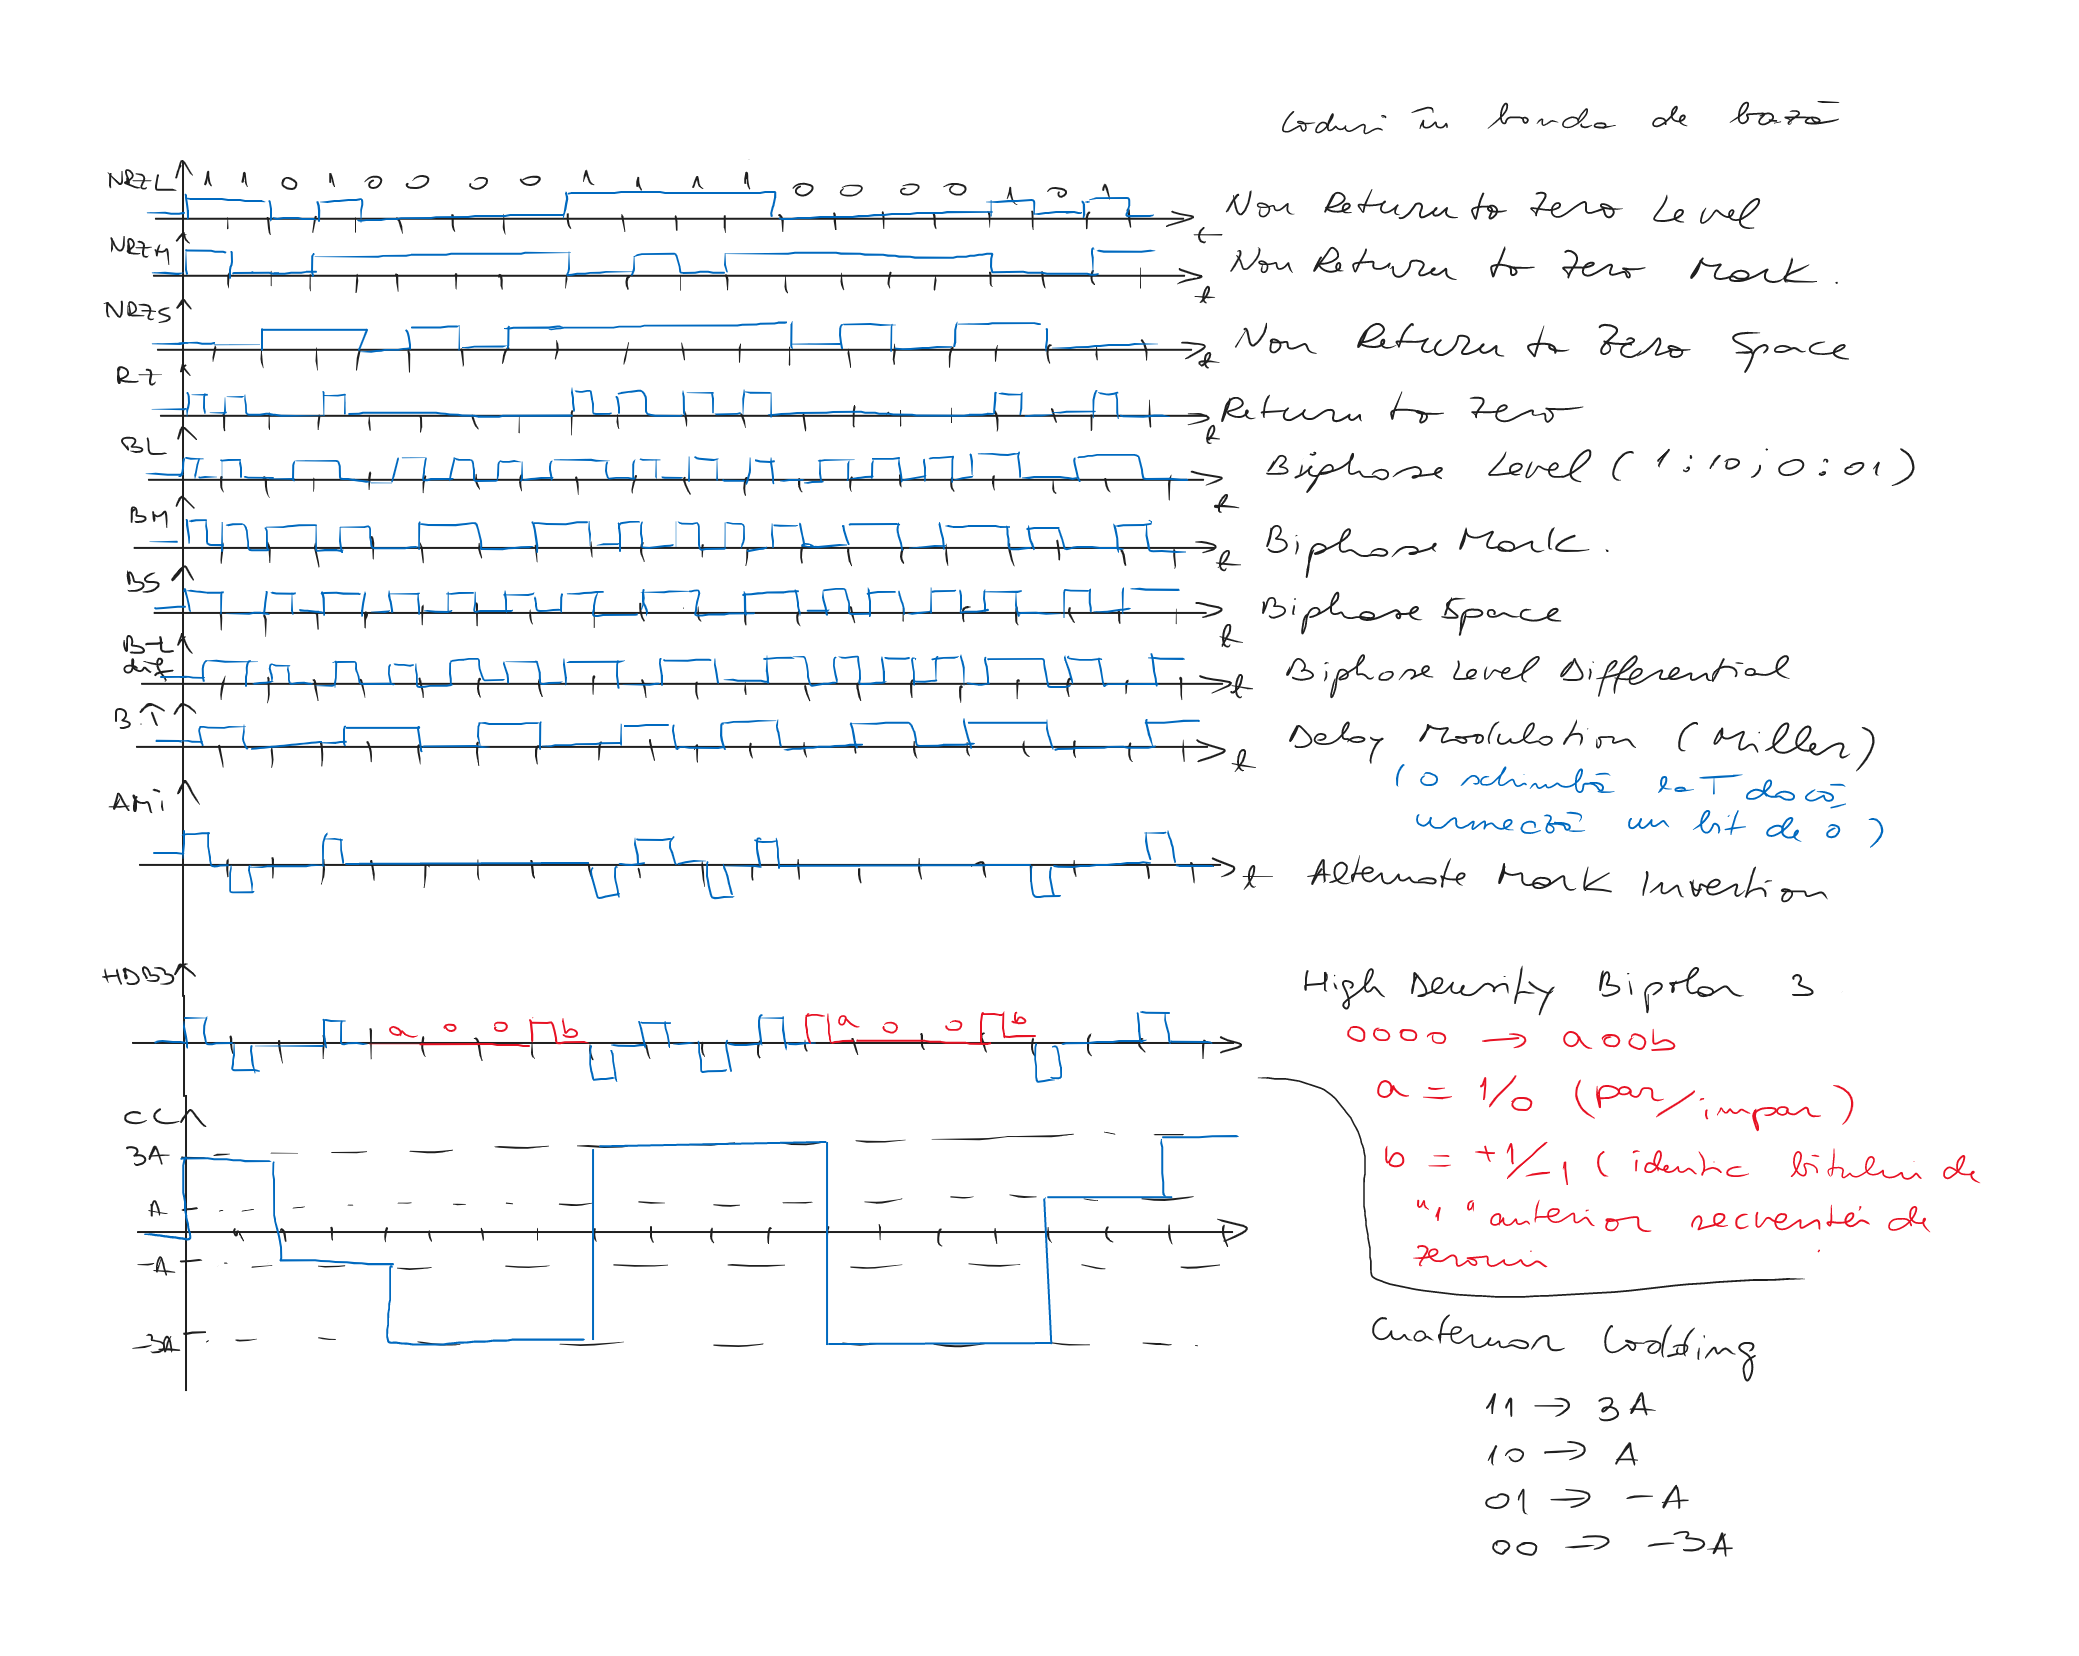 Coduri în banda de bază
NRZL 1 1 0 1 0 0 0 0 1 1 1 1 0 0 0 0 1 0 1
t Non Return to Zero Level
NRZM
t Non Return to Zero Mark.
NRZS
t Non Return to Zero Space
RZ
t Return to Zero
BL
t Biphase Level (1:10; 0:01)
BM
t Biphase Mark.
BS
t Biphase Space
B-L
dif
t Biphase Level Differential
t Delay Modulation (Miller)
(0 schimbă la T dacă
urmează un bit de 0)
AMi
t Alternate Mark Invertion
HDB3
High Density Bipolar 3
a 0 0 b a 0 0 b
0000 → a00b
a = 1/0 (par/impar)
b = +1/-1 (identic bitului de
"1" anterior secvenței de
zerouri
CC
3A
A
-A
-3A
Cuaternar Codding
11 → 3A
10 → A
01 → -A
00 → -3A